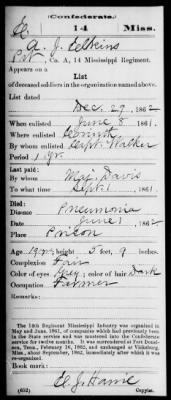 (Confederate.)
E 14 Miss.
A. J. Elkins
Pvt, Co. A, 14 Mississippi Regiment.
Appears on a
List
of deceased soldiers in the organization named above.
List dated
Dec. 29, 1862
When enlisted June 8, 1861.
Where enlisted Corinth
By whom enlisted Capt. Walker
Period 1 yr.
Last paid:
By whom Maj. Davis
To what time Sept. 1, 1861.
Died:
Disease Pneumonia
Date June 1, 1862
Place Prison
Age 19 yrs; height 5 feet, 9 inches.
Complexion Fair
Color of eyes Grey; color of hair Dark
Occupation Farmer
Remarks:
The 14th Regiment Mississippi Infantry was organized in
May and June, 1861, of companies which had previously been
in the State service and was mustered into the Confederate
service for twelve months. It was surrendered at Fort Donelson,
Tenn., February 16, 1862, and exchanged at Vicksburg,
Miss., about September, 1862, immediately after which it was
re-organized.
Book mark:
(652) Copyist.